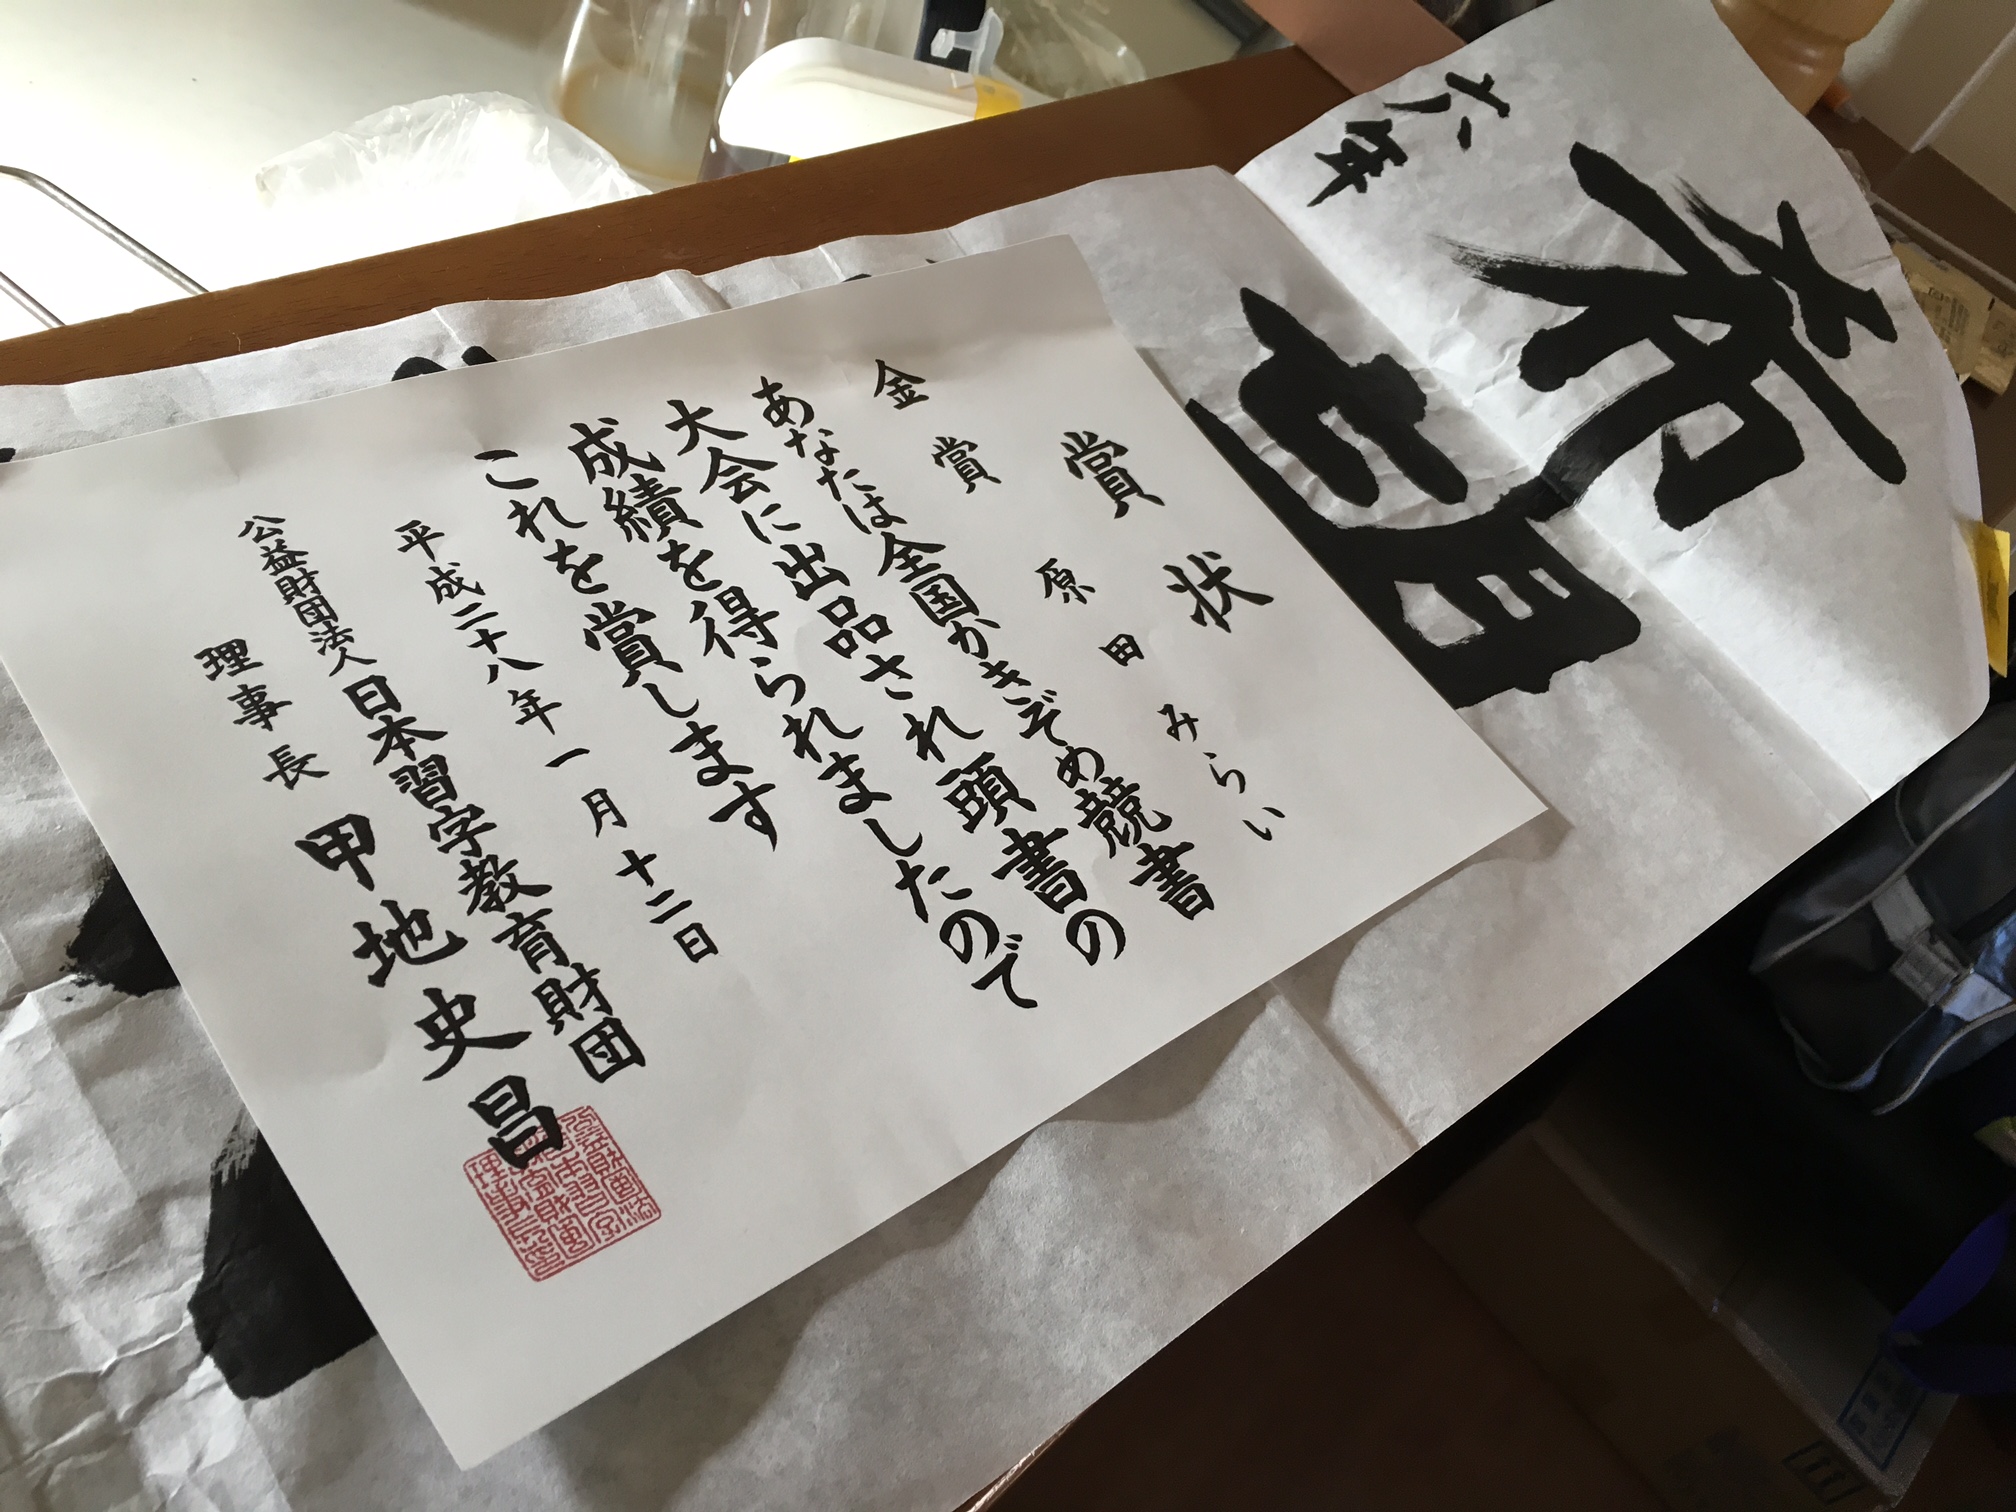 賞状
金賞 原田みらい
あなたは全国かきぞめ競書の
大会に出品され頭書の
成績を得られましたので
これを賞します
平成二十八年一月十二日
公益財団法人日本習字教育財団
理事長 甲地史昌
希望
六年